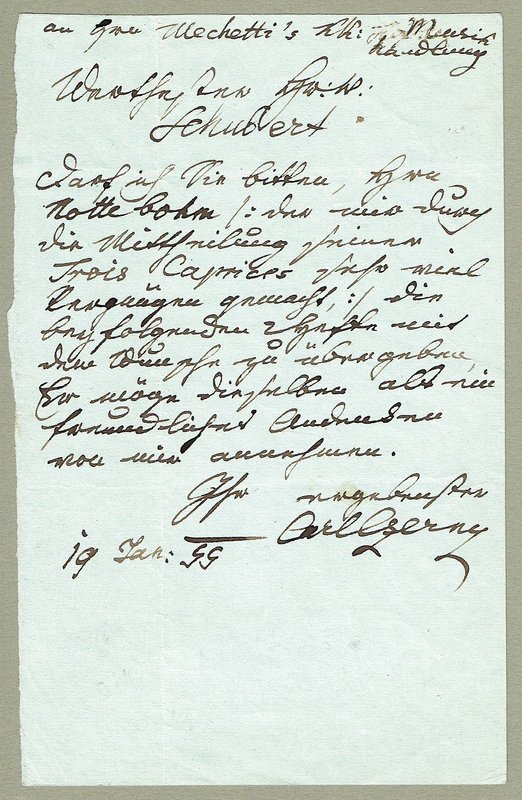 an Hrn Mechetti's kk: Hof Musik
handlung
Werthester Hr: v:
Schubert
Darf ich Sie bitten, Hrn
Nottebohm /: der mir durch
die Mittheilung seiner
Trois Caprices sehr viel
Vergnügen gemacht, :/ die
beyfolgenden 2 Hefte mit
dem Wunsche zu übergeben,
Er möge dieselben als ein
freundliches Andenken
von mir annehmen.
Ihr ergebenster
Carl Czerny
19 Jan: 55